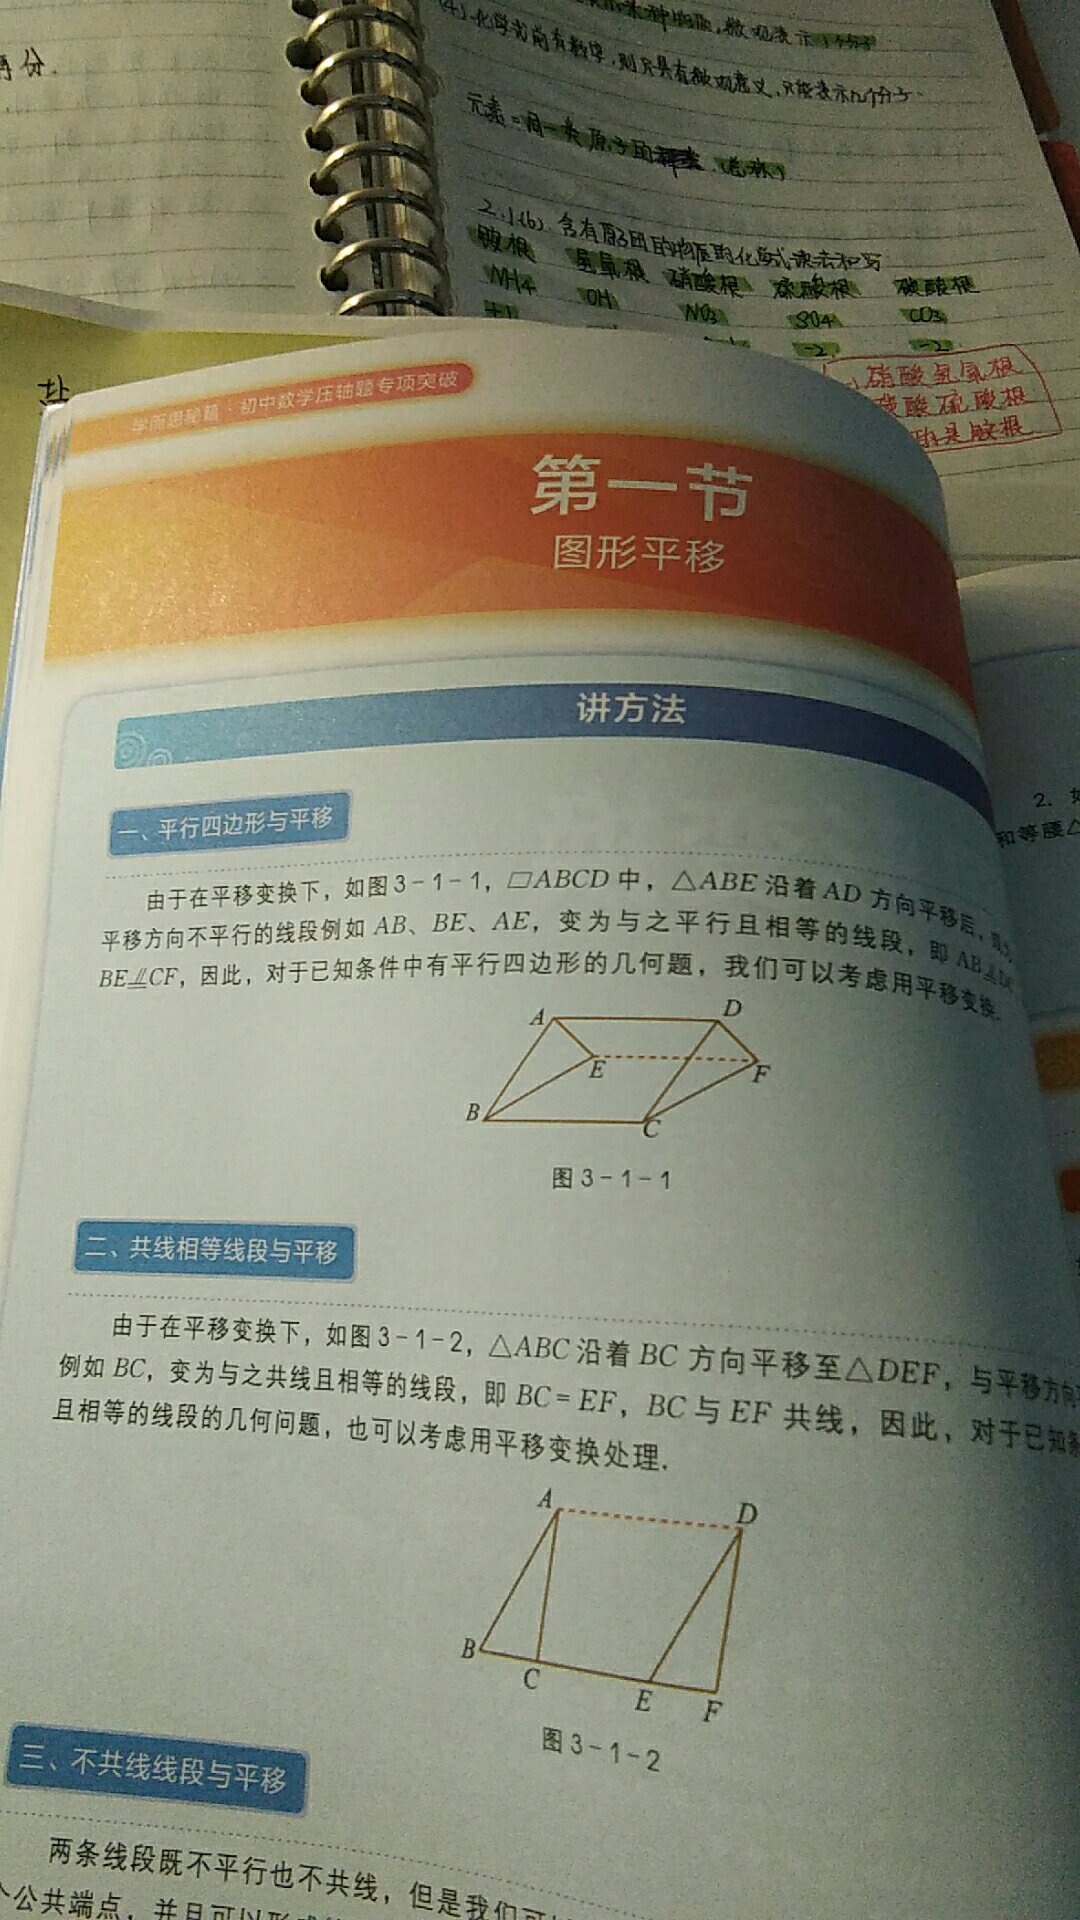 得分.
(4).化学式前有数字,则只具有微观意义,只能表示n个分子.
元素=同一类原子的 (总称)
2.1(b) 含有原子团的物质的化学式读法和写
铵根 氢氧根 硝酸根 硫酸根 碳酸根
NH4 OH NO3 SO4 CO3
+1 -2 -2
硝酸氢氧根
碳酸硫酸根
铵根
学而思秘籍：初中数学压轴题专项突破
第一节
图形平移
讲方法
一、平行四边形与平移
由于在平移变换下，如图3-1-1，▱ABCD中，△ABE沿着AD方向平移后，
平移方向不平行的线段例如AB、BE、AE，变为与之平行且相等的线段，即AB
BE⫽CF，因此，对于已知条件中有平行四边形的几何题，我们可以考虑用平移变换.
A D
E F
B C
图3-1-1
二、共线相等线段与平移
由于在平移变换下，如图3-1-2，△ABC沿着BC方向平移至△DEF，与平移方向
例如BC，变为与之共线且相等的线段，即BC=EF，BC与EF共线，因此，对于已知条
且相等的线段的几何问题，也可以考虑用平移变换处理.
A D
B C E F
图3-1-2
三、不共线线段与平移
两条线段既不平行也不共线，但是我们可
个公共端点，并且可以形
2. 如
和等腰△